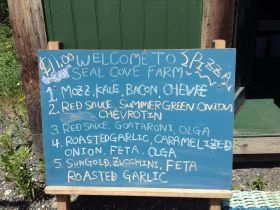 $11.00 WELCOME TO PIZZA
SEAL COVE FARM
1. MOZZ, KALE, BACON, CHÈVRE
2. RED SAUCE, SUMMER GREEN ONION
CHÈVROTIN
3. RED SAUCE, GOATARONI, OLGA
4. ROASTED GARLIC, CARAMELIZED
ONION, FETA, OLGA
5. SUNGOLD, ZUCCHINI, FETA
ROASTED GARLIC